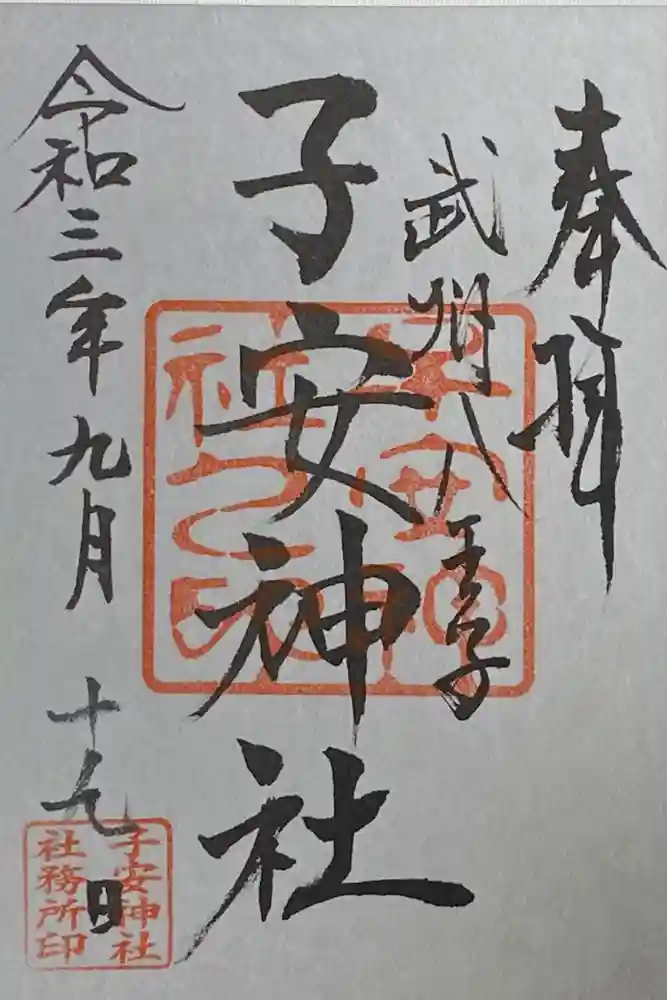 奉拝
武州八王子
子安神社
令和三年九月十九日
子安神
社之印
子安神社
社務所印